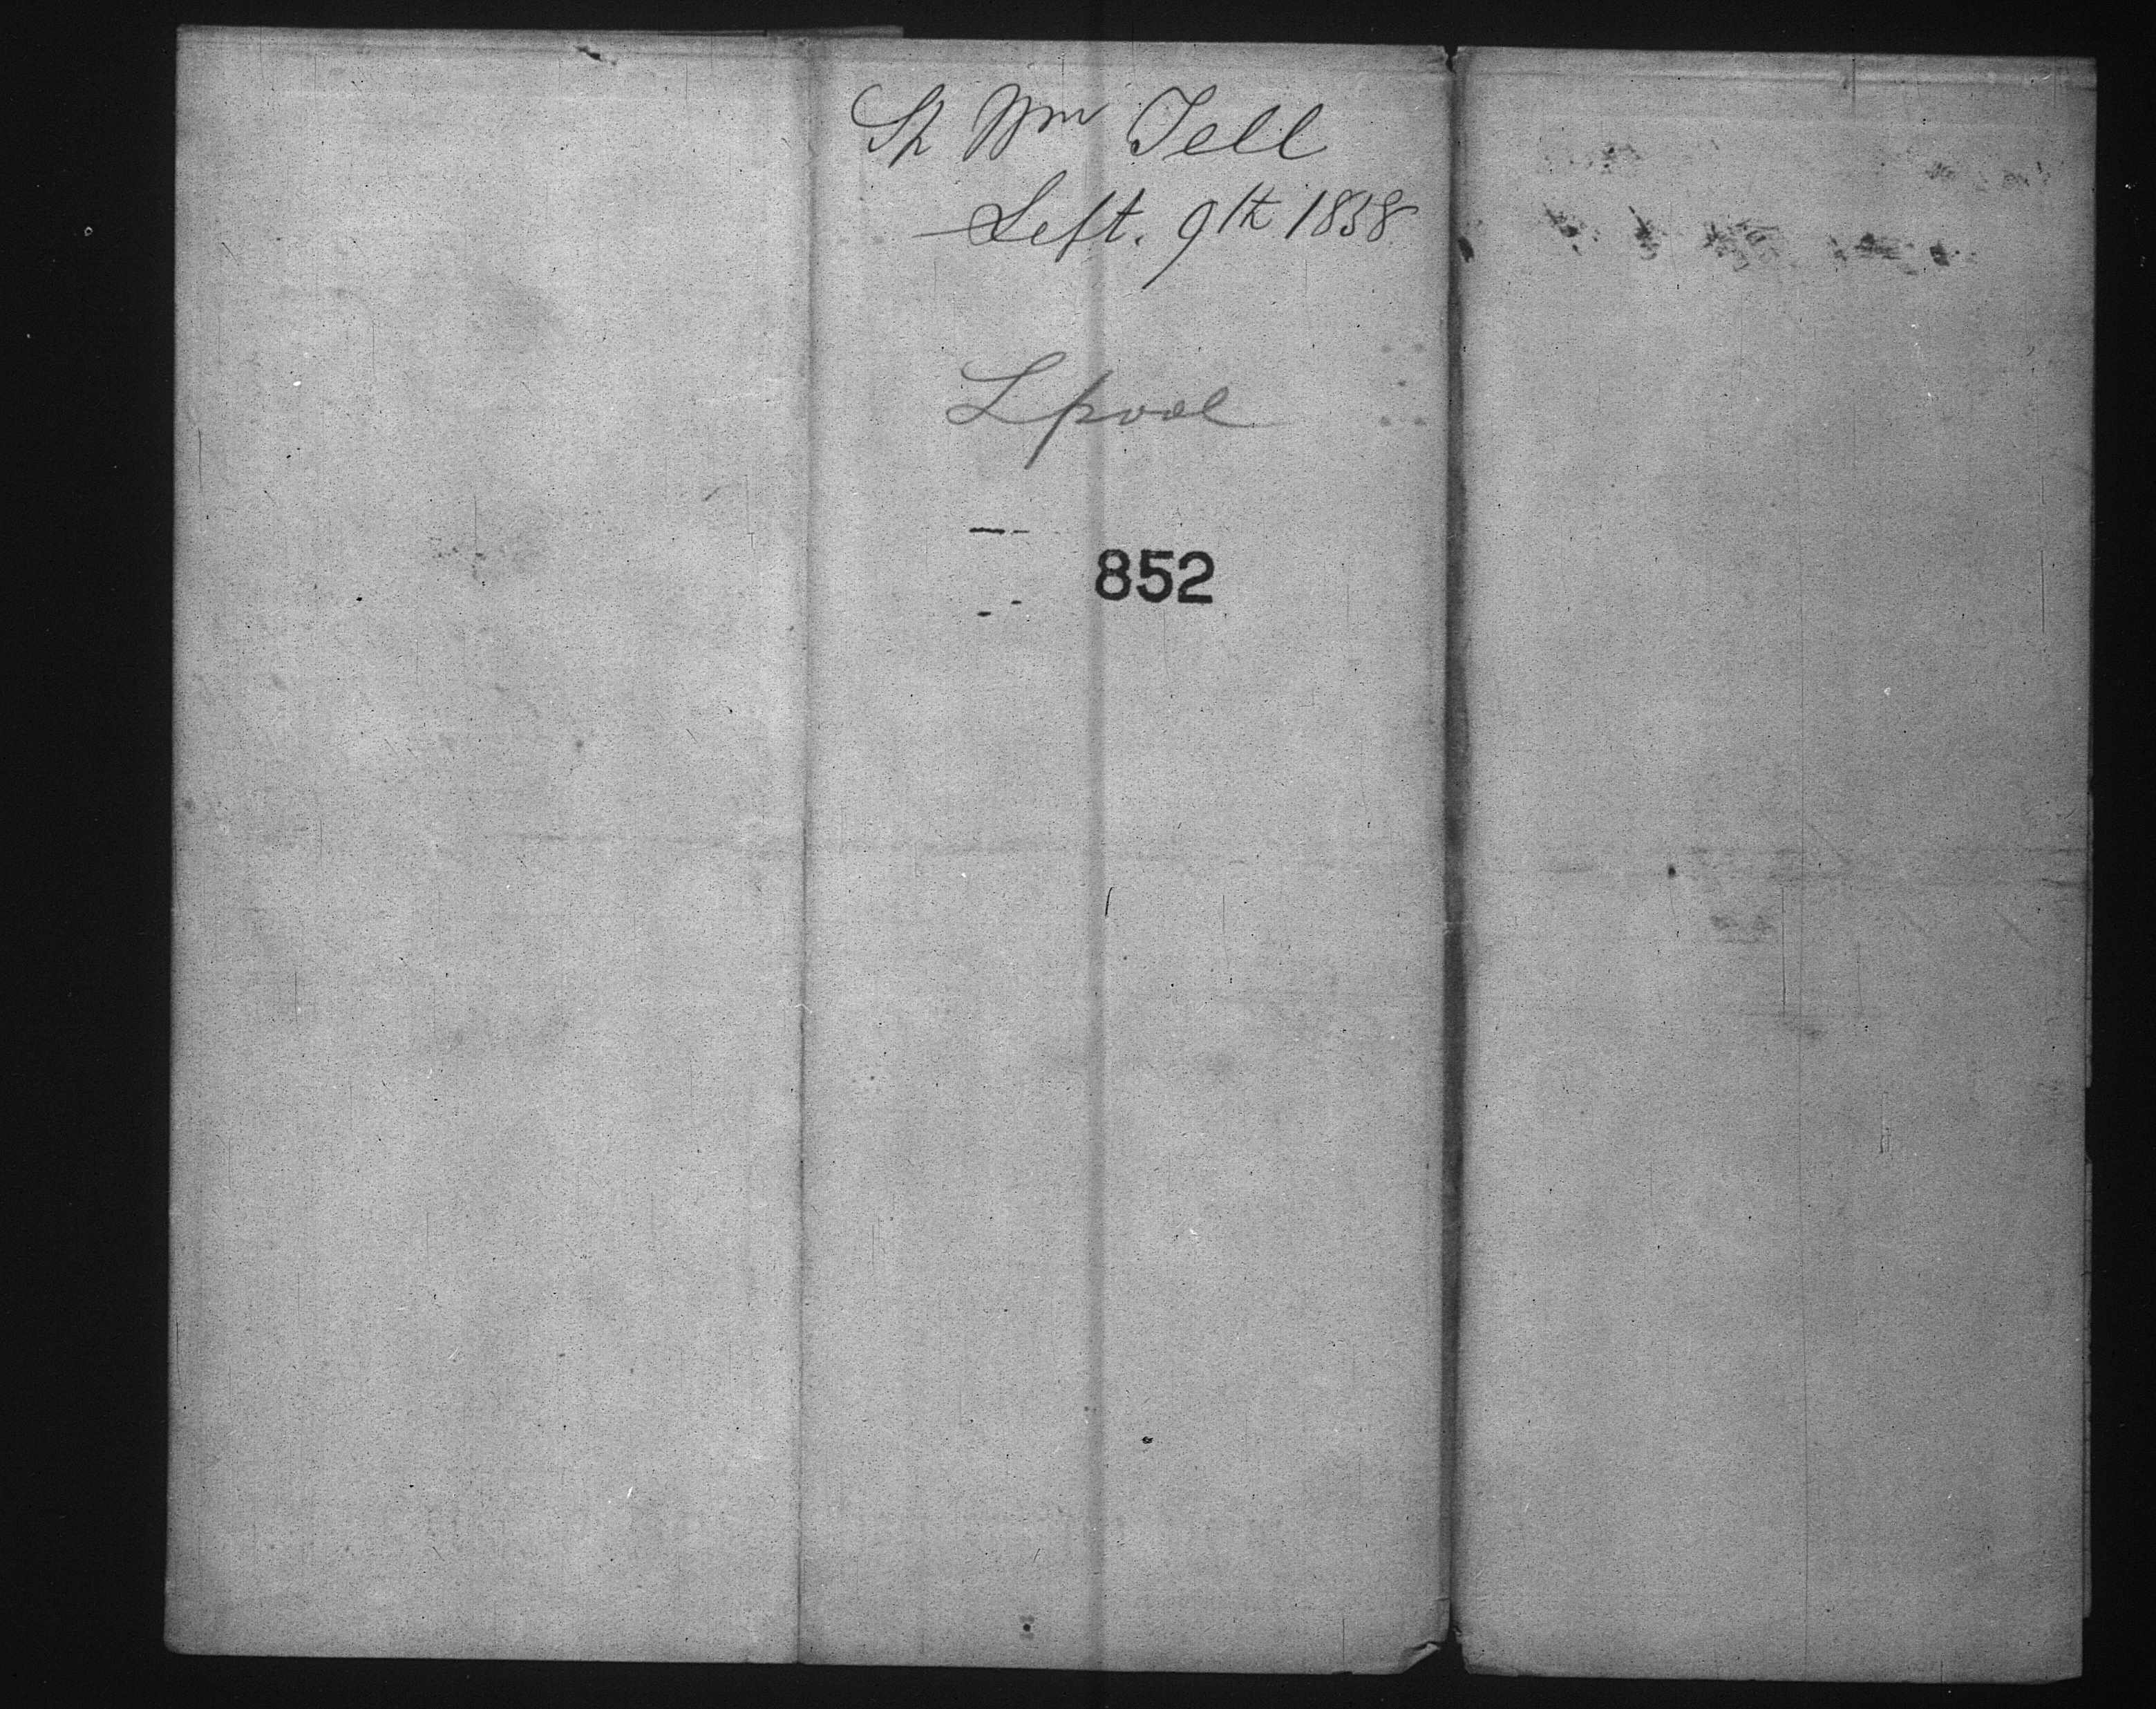 Sh Wm Tell
Sept. 9th 1838
Lpool
852